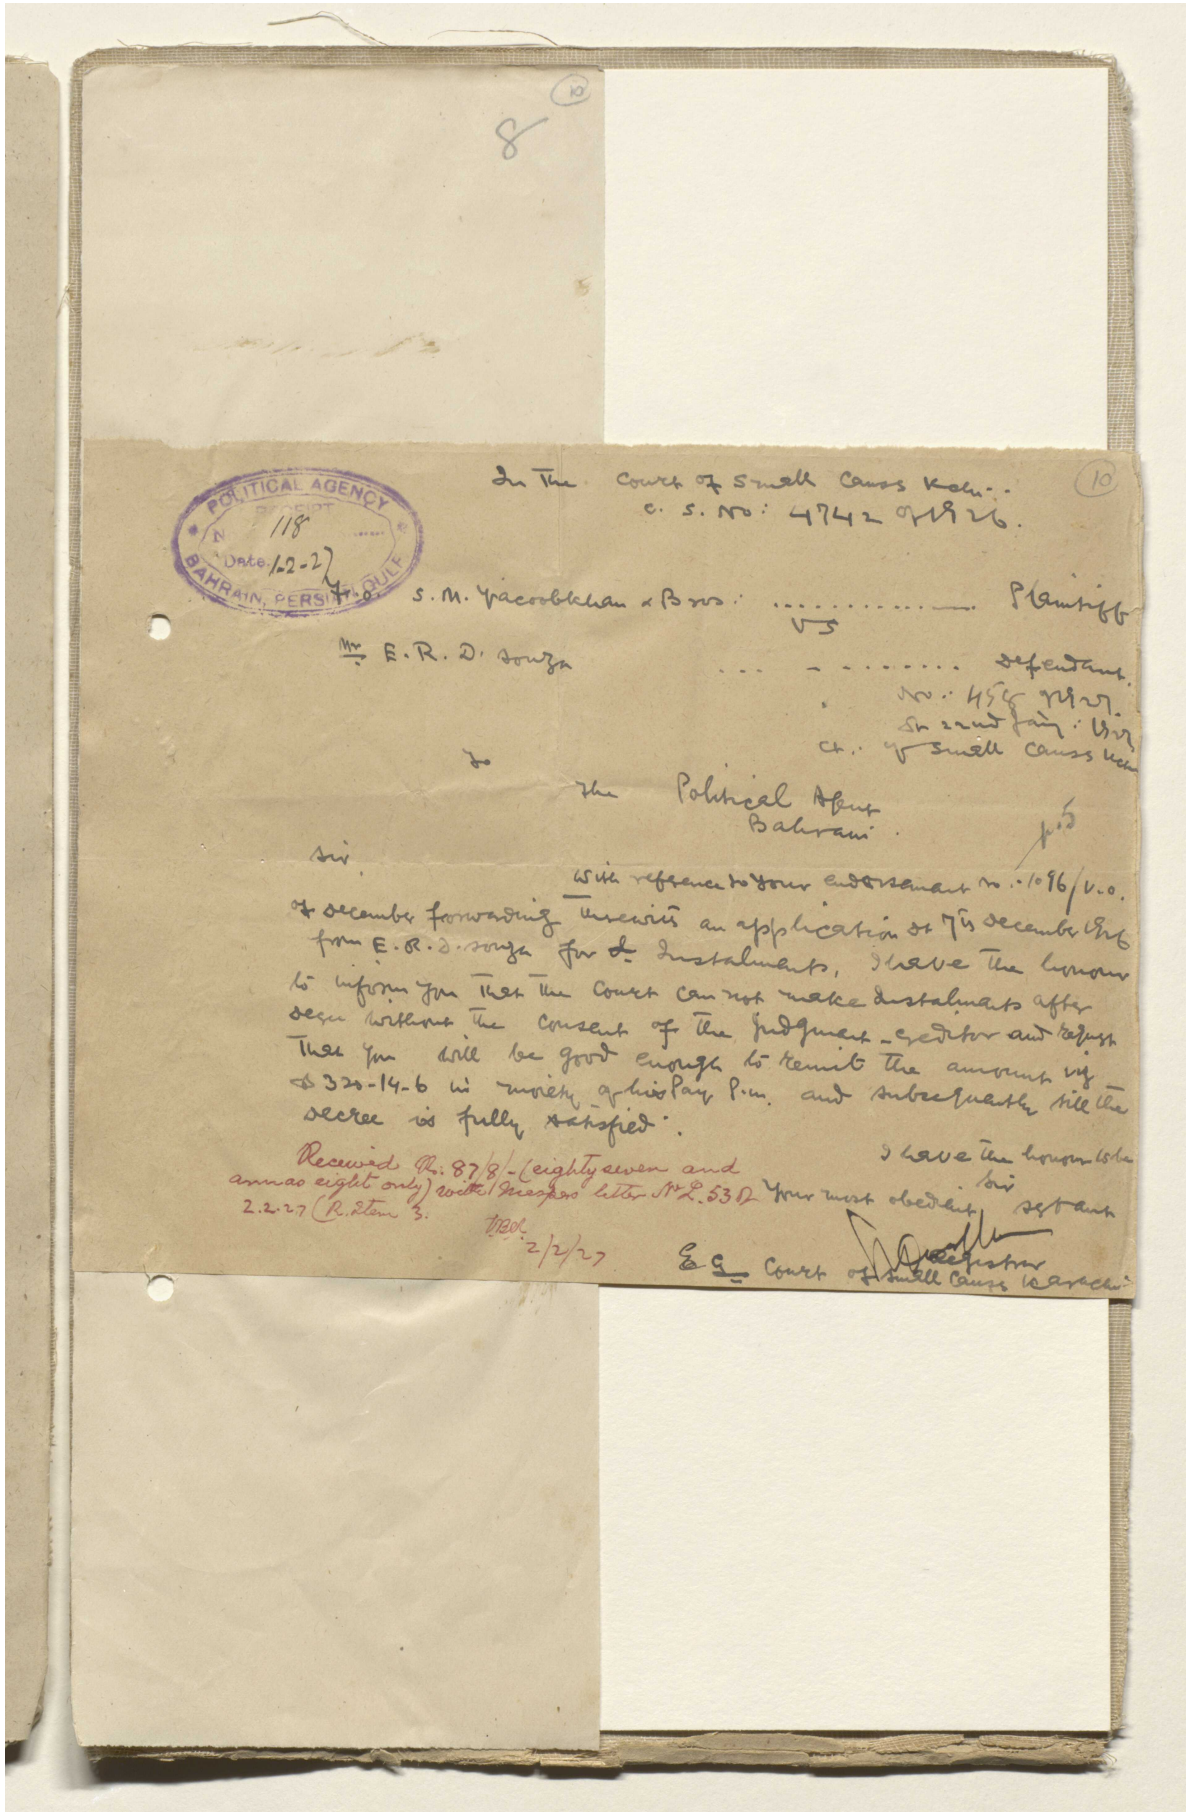 10
8
10
In the Court of Small Causes Kchi:
C. S. No: 4742 of 1926.
POLITICAL AGENCY
RECEIPT
N 118
Date 1-2-27
BAHRAIN, PERSIAN GULF
S. M. Yacoobkhan & Bros: Plaintiff
VS
Mr E. R. D. Souza Defendant.
No: 458 of 1927.
Dt 22nd Jany: 1927
Ct: of Small Causes Kchi
To
The Political Agent
Bahrain.
p. 5
Sir,
With reference to your endorsement no:- 1096/V.O.
of December forwarding therewith an application dt 7th December 1926
from E. R. D. Souza for Instalments, I have the honour
to inform you that the Court can not make Instalments after
decree without the consent of the Judgment-creditor and request
that you will be good enough to remit the amount viz
Rs 320-14-6 in moiety of his Pay P.m. and subsequently till the
decree is fully satisfied.
I have the honour to be
Sir
Your most obedient servant
Registrar
Court of Small Causes Karachi
Received Rs. 87/8/- (eighty seven and
annas eight only) with Mespers letter No L. 53 D
2.2.27 (R. Item 3.
2/2/27